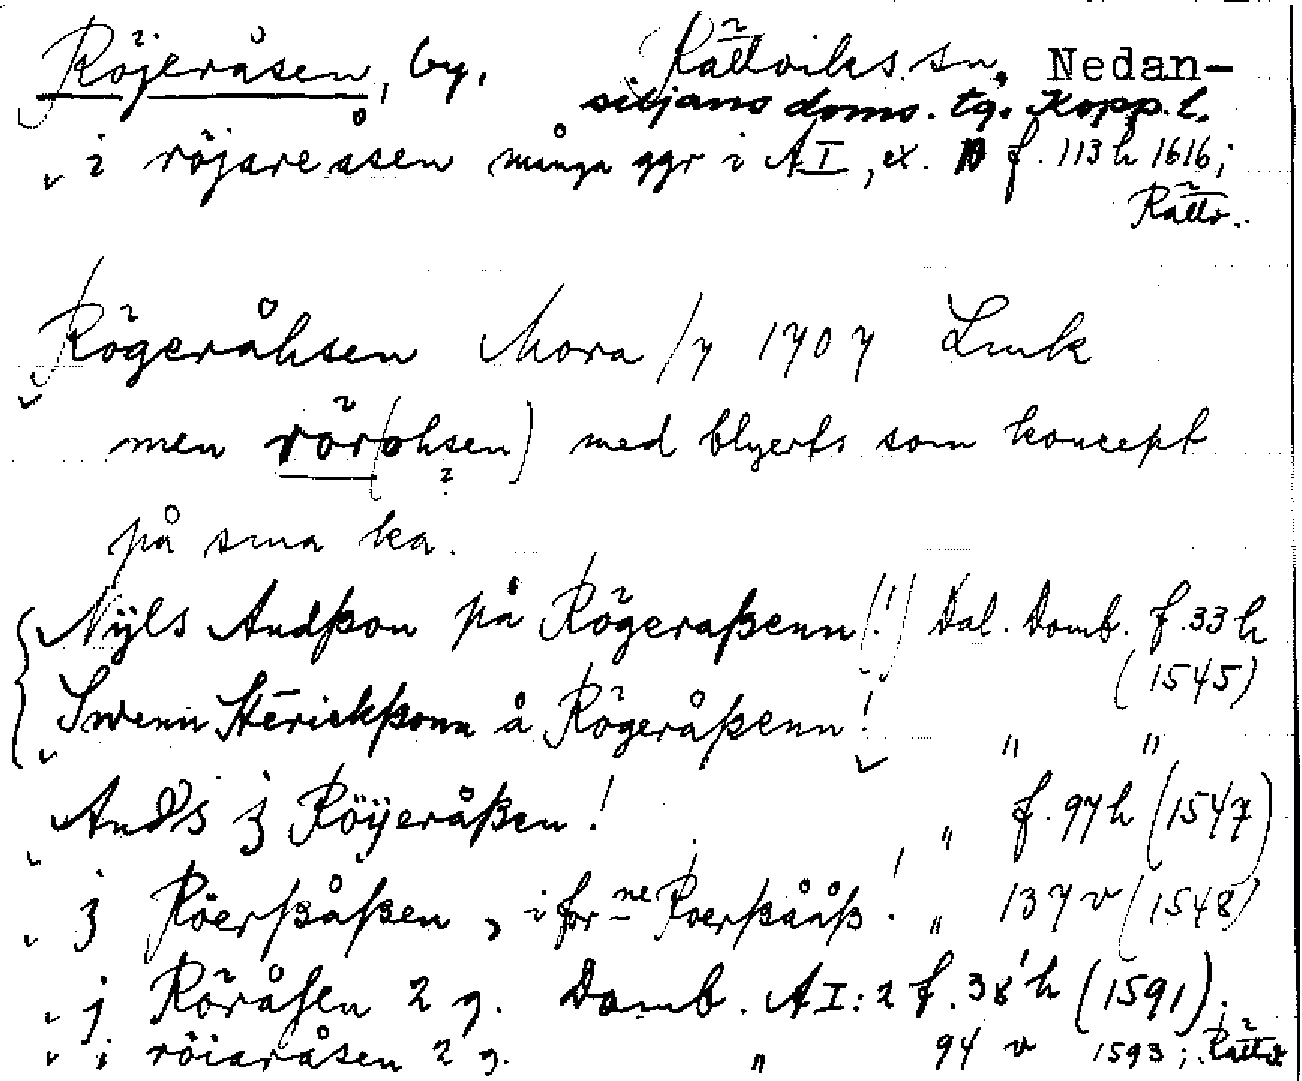 Röjeråsen, by. Rättviks sn, Nedan-
siljans doms. tg. Kopp. l.
i röjareåsen många ggr i A I, ex. f. 113 h 1616;
Rättv.
Rögeråhsen Mora /7 1707 Lmk
men rör(ohsen) med blyerts som koncept
på sma ka.
Nÿls Andßon på Rögeraßenn (!) Dal. Domb. f. 33 h
(1545)
Swenn Hérickßonn å Rögeråßenn! " "
And's j Röÿeråßen! " f. 97 h (1547)
j Röerßåßen, i for ne Roerßååß! " 137 v (1548)
j Röråsen 2 g. Domb. A I:2 f. 38 h (1591).
i röiaråsen 2 g. " 94 v 1593; Rättv